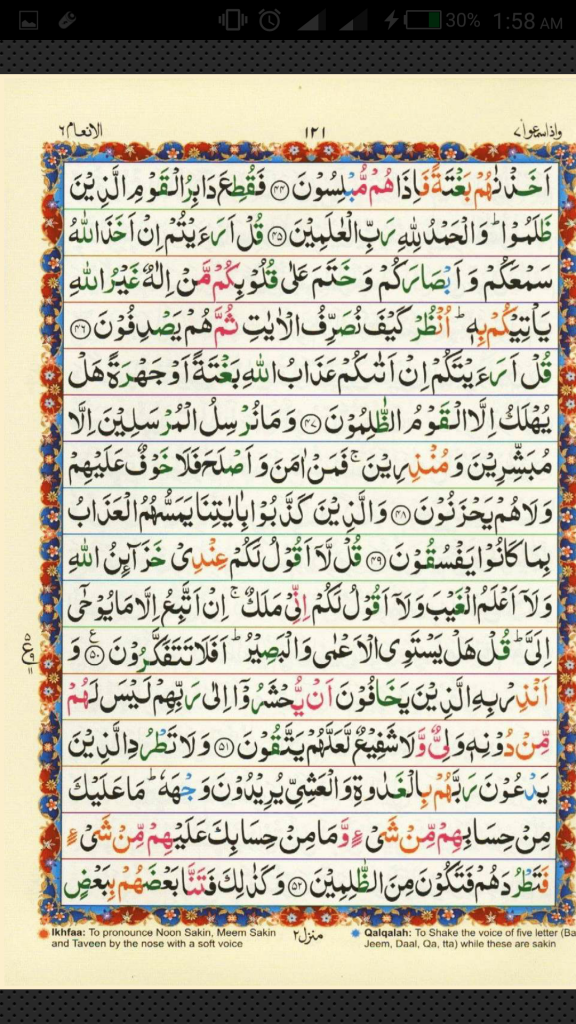 30% 1:58 AM
الانعام ٦ ١٢١ واذا سمعوا ٧
اَخَذۡنٰهُمۡ بَغۡتَةً فَاِذَا هُمۡ مُّبۡلِسُوۡنَ ﴿۴۴﴾ فَقُطِعَ دَابِرُ الۡقَوۡمِ الَّذِيۡنَ
ظَلَمُوۡاؕ وَالۡحَمۡدُ لِلّٰهِ رَبِّ الۡعٰلَمِيۡنَ ﴿۴۵﴾ قُلۡ اَرَءَيۡتُمۡ اِنۡ اَخَذَ اللّٰهُ
سَمۡعَكُمۡ وَ اَبۡصَارَكُمۡ وَ خَتَمَ عَلٰى قُلُوۡبِكُمۡ مَّنۡ اِلٰهٌ غَيۡرُ اللّٰهِ
يَاۡتِيۡكُمۡ بِهٖؕ اُنْظُرۡ كَيۡفَ نُصَرِّفُ الۡاٰيٰتِ ثُمَّ هُمۡ يَصۡدِفُوۡنَ ﴿۴۶﴾
قُلۡ اَرَءَيۡتَكُمۡ اِنۡ اَتٰٮكُمۡ عَذَابُ اللّٰهِ بَغۡتَةً اَوۡ جَهۡرَةً هَلۡ
يُهۡلَكُ اِلَّا الۡقَوۡمُ الظّٰلِمُوۡنَ ﴿۴۷﴾ وَمَا نُرۡسِلُ الۡمُرۡسَلِيۡنَ اِلَّا
مُبَشِّرِيۡنَ وَ مُنۡذِرِيۡنَۚ فَمَنۡ اٰمَنَ وَ اَصۡلَحَ فَلَا خَوۡفٌ عَلَيۡهِمۡ
وَلَا هُمۡ يَحۡزَنُوۡنَ ﴿۴۸﴾ وَالَّذِيۡنَ كَذَّبُوۡا بِاٰيٰتِنَا يَمَسُّهُمُ الۡعَذَابُ
بِمَا كَانُوۡا يَفۡسُقُوۡنَ ﴿۴۹﴾ قُلْ لَّاۤ اَقُوۡلُ لَكُمۡ عِنۡدِىۡ خَزَآئِنُ اللّٰهِ
وَلَاۤ اَعۡلَمُ الۡغَيۡبَ وَلَاۤ اَقُوۡلُ لَكُمۡ اِنِّىۡ مَلَكٌۚ اِنۡ اَتَّبِعُ اِلَّا مَا يُوۡحٰٓى
اِلَىَّؕ قُلۡ هَلۡ يَسۡتَوِى الۡاَعۡمٰى وَالۡبَصِيۡرُؕ اَفَلَا تَتَفَكَّرُوۡنَ ﴿۵۰﴾ وَ
اَنۡذِرۡ بِهِ الَّذِيۡنَ يَخَافُوۡنَ اَنۡ يُّحۡشَرُوۡۤا اِلٰى رَبِّهِمۡ لَيۡسَ لَهُمۡ
مِّنۡ دُوۡنِهٖ وَلِىٌّ وَّلَا شَفِيۡعٌ لَّعَلَّهُمۡ يَتَّقُوۡنَ ﴿۵۱﴾ وَلَا تَطۡرُدِ الَّذِيۡنَ
يَدۡعُوۡنَ رَبَّهُمۡ بِالۡغَدٰوةِ وَالۡعَشِىِّ يُرِيۡدُوۡنَ وَجۡهَهٗؕ مَا عَلَيۡكَ
مِنۡ حِسَابِهِمۡ مِّنۡ شَىۡءٍ وَّمَا مِنۡ حِسَابِكَ عَلَيۡهِمۡ مِّنۡ شَىۡءٍ
فَتَطۡرُدَهُمۡ فَتَكُوۡنَ مِنَ الظّٰلِمِيۡنَ ﴿۵۲﴾ وَكَذٰلِكَ فَتَنَّا بَعۡضَهُمۡ بِبَعۡضٍ
Ikhfaa: To pronounce Noon Sakin, Meem Sakin
and Taveen by the nose with a soft voice
منزل ٢
Qalqalah: To Shake the voice of five letter (Ba
Jeem, Daal, Qa, tta) while these are sakin